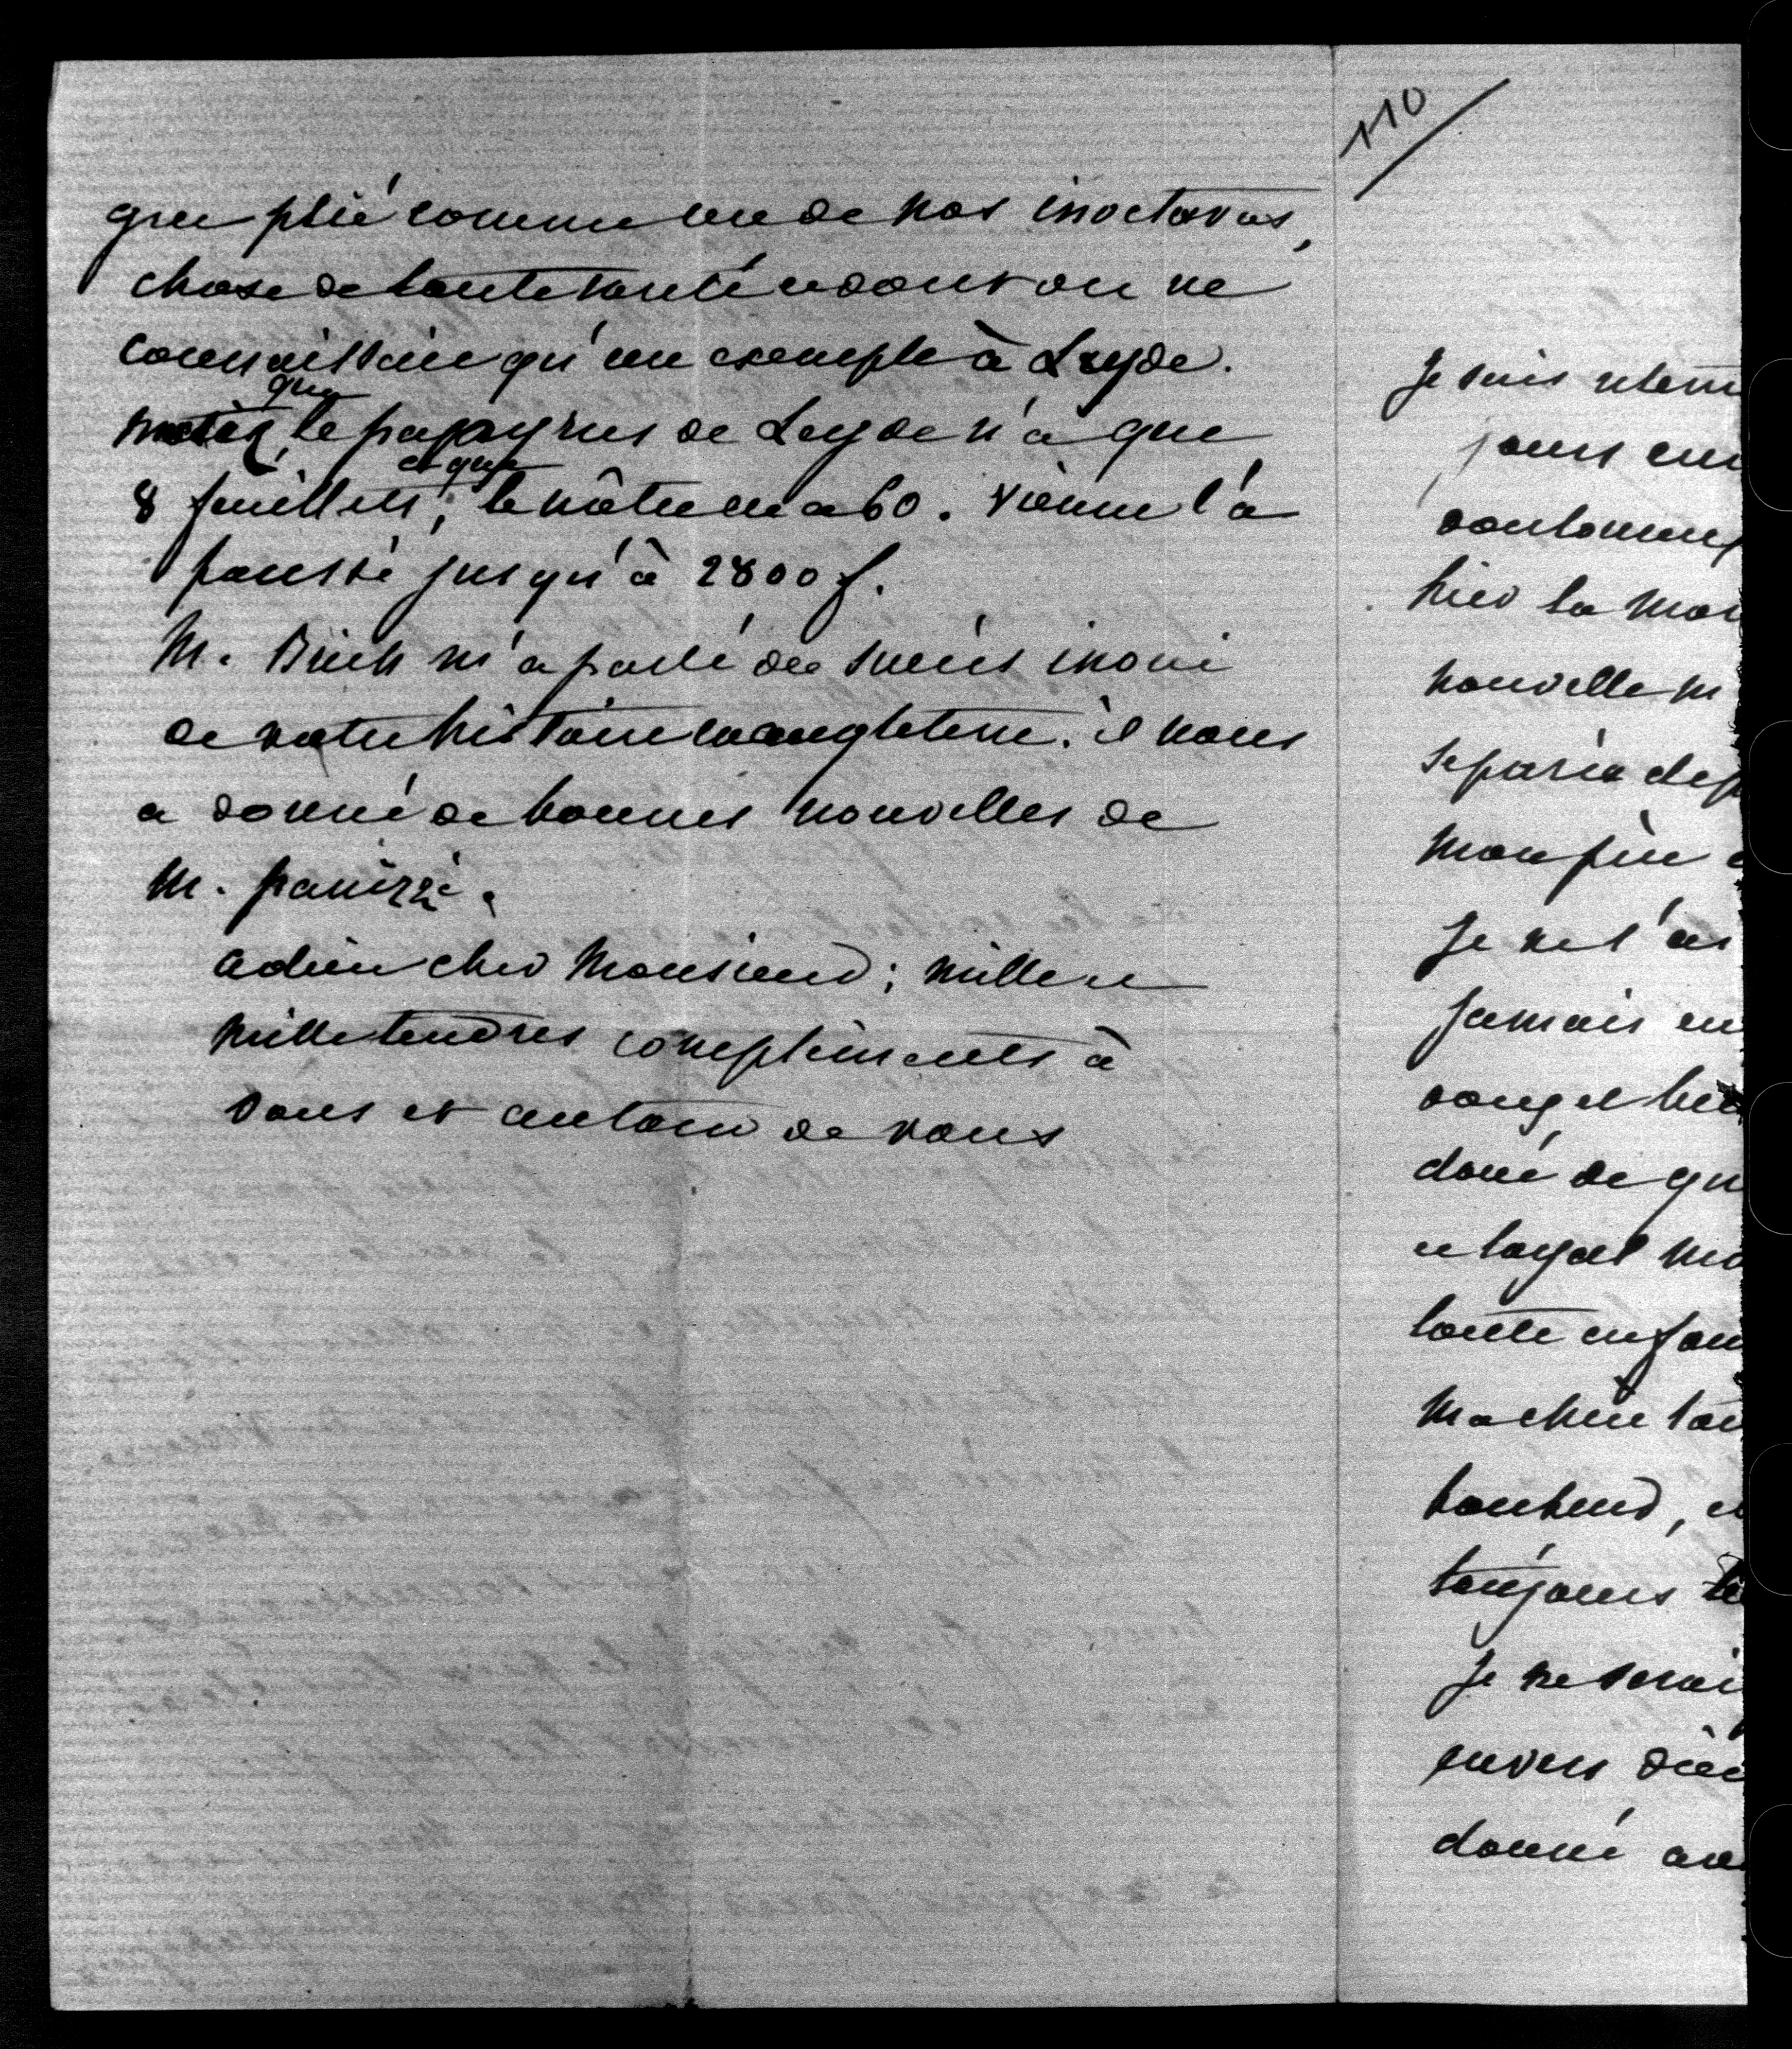 grec plié comme un de nos inoctavos,
chose de toute rareté et dont on ne
connaissait qu'un exemple à Leyde.
notez que le papyrus de Leyde n'a que
8 feuillets, et que le nôtre en a 60. Vienne l'a
poussé jusqu'à 2800 f.
M. Birch m'a parlé du succès inoui
de votre histoire en angleterre. il nous
a donné de bonnes nouvelles de
M. panizzi.
adieu cher Monsieur; mille et
mille tendres compliments à
vous et autour de vous
110
Je suis
jours
hier la
nouvelle
mon père
Je ne l'ai
jamais eu
doué de
et loyal
toute
Ma chère
bonheur,
toujours
Je ne serai
envers
donné